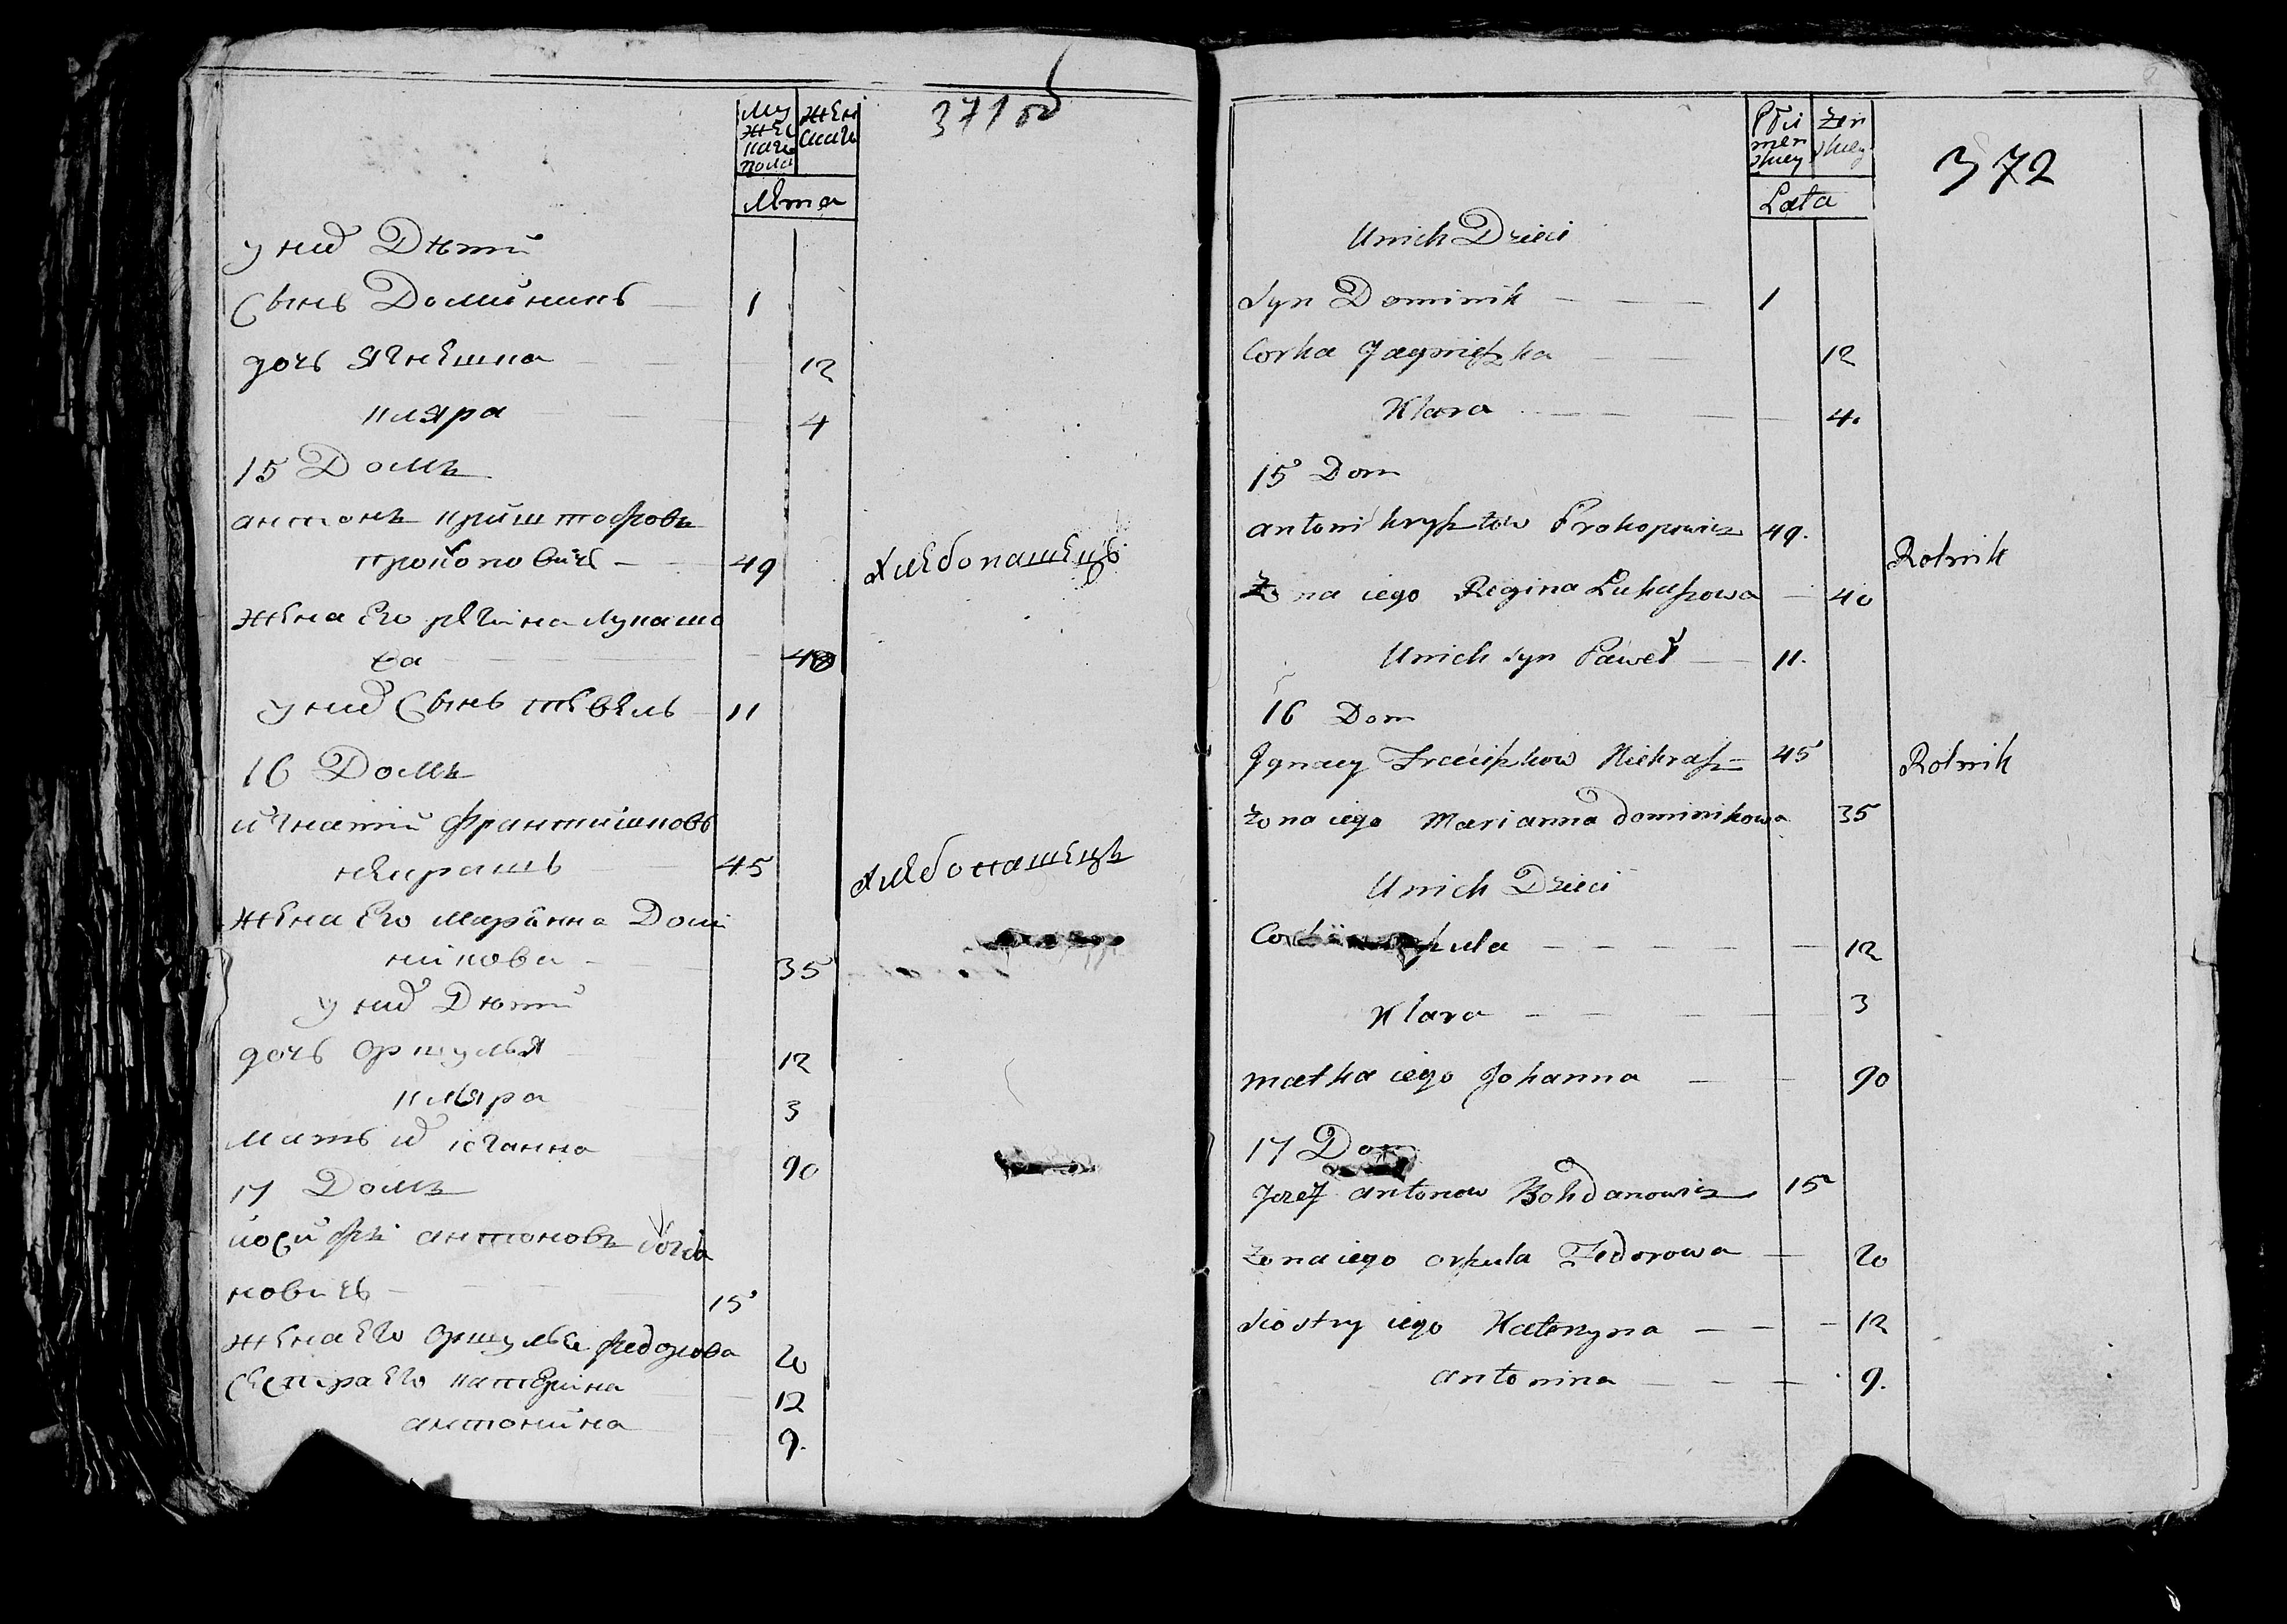 Мужескаго пола
Женскаго
371 об
Лѣта
у них Дѣти
Сынъ Доминикъ 1
дочь Ягнешка 12
Кляра 4
15 Домъ
антонъ Криштофовъ
прокоповичъ 49 хлебопашецъ
жена Его регина лукашо
ва 40
у них Сынъ павелъ 11
16 Домъ
игнатий Францишковъ
некрашъ 45 хлебопашецъ
жена Его Марiянна Доми
никова 35
у них Дѣти
дочь оршулья 12
кляра 3
Мать их iоганна 90
17 Домъ
иосифъ антоновъ богда
новичъ 15
жена Его оршулья федорова 20
Сестра Его катерина 12
антонина 9.
Płci menskiey
żenskiey
372
Lata
Unich Dzieci
Syn Dominik 1
Corka Jagnieszka 12
Klara 4.
15 Dom
antoni krysztow Prokopowicz 49. Rolnik
Żona iego Regina Łukaszowa 40
Unich syn Paweł 11.
16 Dom
Jgnacy Frociszkow Niekrasz 45 Rolnik
żona iego Marianna dominikowa 35
Unich Dzieci
12
Klara 3
matka iego Johanna 90
17 Dom
Jozef antonow Bohdanowicz 15
żona iego orszula Fedorowa 20
siostry iego Katerzyna 12
antonina 9.